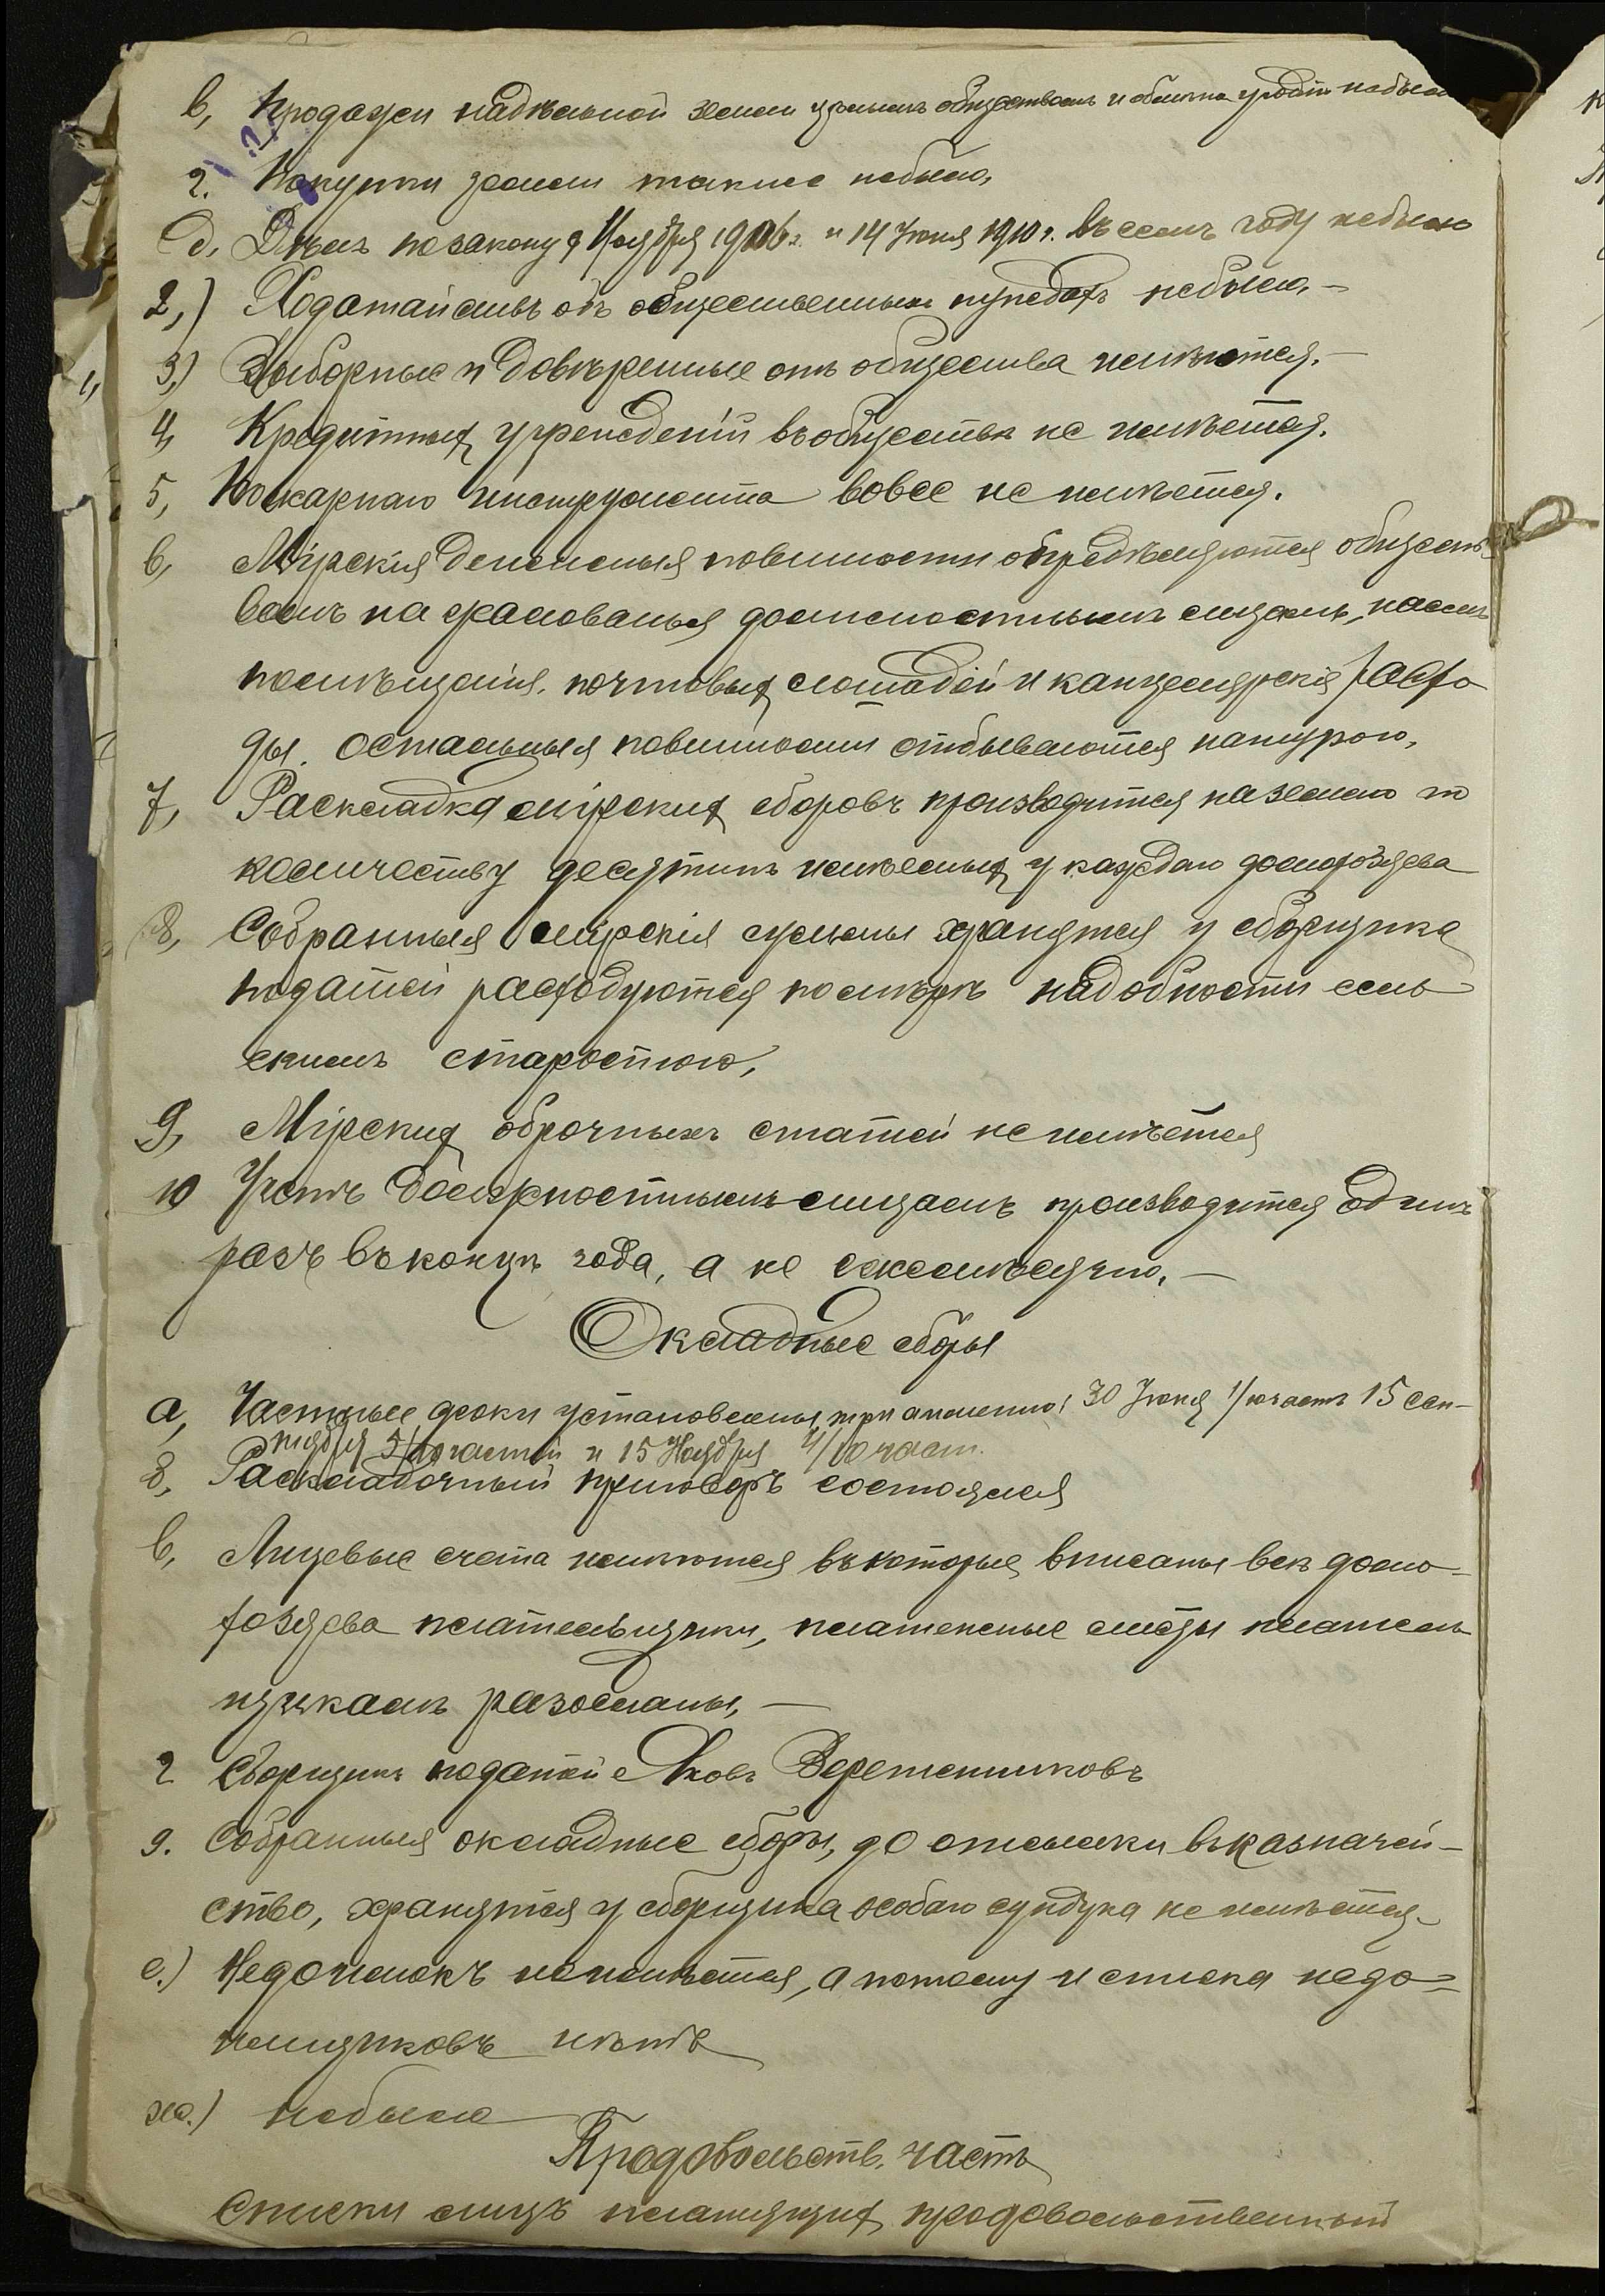 в, Продажи надѣльной земли цѣлымъ обществомъ и обмѣна угодій небыло
г. Покупки земли также небыло,
д, Дѣлъ по закону 9 Ноября 1906 г. и 14 Іюня 1910 г. въ семъ году небыло
2,) Ходатайствъ объ общественныхъ нуждахъ небыло, —
3,) Выборные и довѣренные отъ общества имѣются. —
4, Кредитныхъ учрежденій въ обществѣ не имѣется.
5, Пожарнаго инструмента вовсе не имѣется.
6, Мірскія денежныя повинности опредѣляются общест-
вомъ на жалованья должностнымъ лицамъ, наемъ
помѣщенія, почтовыхъ лошадей и канцелярскія расхо
ды. Остальныя повинности отбываются натурою,
7, Раскладка мірскихъ сборовъ производится на землю по
количеству десятинъ имѣемыхъ у каждаго домохозяева
8, Собранныя мірскія суммы хранятся у сборщика
податей расходуются по мѣрѣ надобности сель
скимъ старостою,
9, Мірскихъ оброчныхъ статей не имѣется
10 Учетъ должностнымъ лицамъ производится одинъ
разъ въ концѣ года, а не ежемѣсячно. —
Окладные сборы
а, Частные сроки установлены, три а именно: 30 Іюня 1/10 часть 15 Сен-
тября 5/10 частей и 15 Ноября 4/10 част.
б, Раскладочный приговоръ состоялся
в, Лицевые счета имѣются въ которые вписаны всѣ домо-
хозяева плательщики, платежные листы платель
щикамъ разосланы, —
г Сборщикъ податей Яковъ Веретенниковъ
д. Собранныя окладные сборы, до отсылки въ казначей-
ство, хранятся у сборщика особаго сундука не имѣется
е.) Недоимокъ не имѣется, а потому и списка недо=
имщиковъ нѣтъ
ж.) небыло
Продовольств. часть
Списки лицъ платящихъ продовольственный